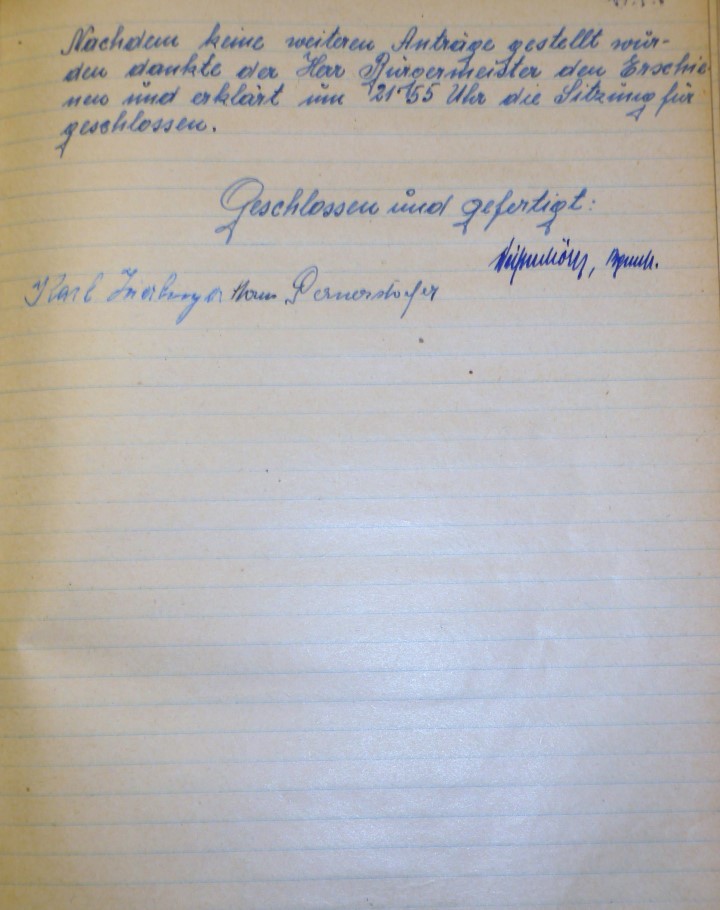 Nachdem keine weiteren Anträge gestellt wur-
den dankte der Herr Bürgermeister den Erschie-
nen und erklärt um 21 55 Uhr die Sitzung für
geschlossen.
Geschlossen und gefertigt:
Karl Hans Pernersdorfer